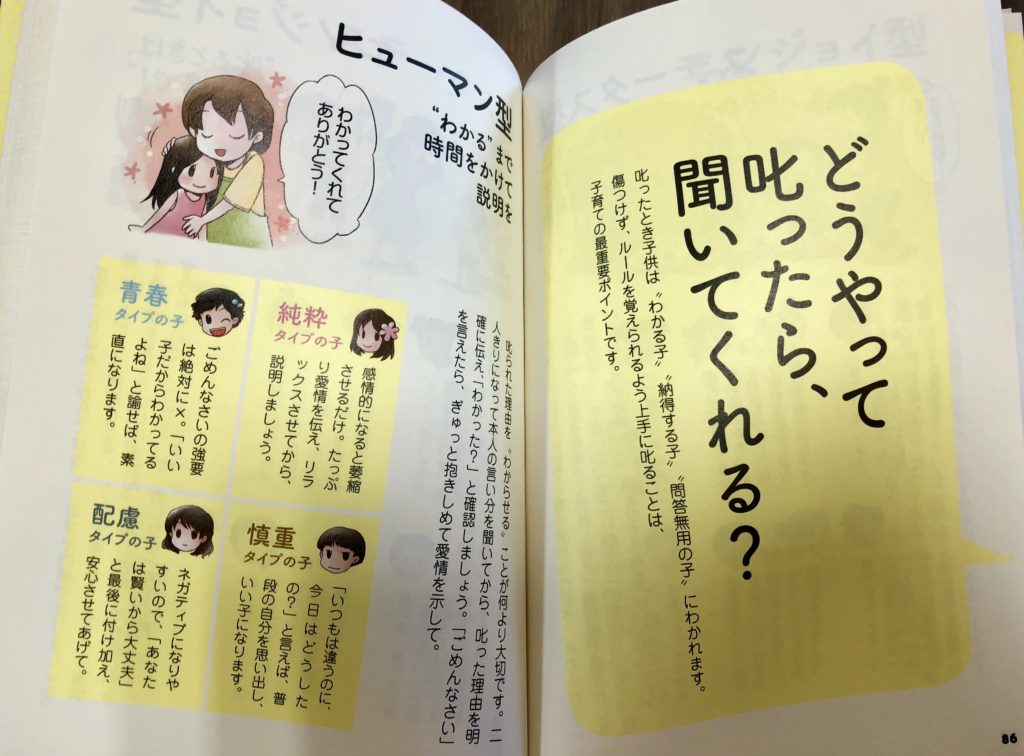 どうやって
叱ったら、
聞いてくれる？
叱ったとき子供は〝わかる子〟〝納得する子〟〝問答無用の子〟にわかれます。
傷つけず、ルールを覚えられるよう上手に叱ることは、
子育ての最重要ポイントです。
86
ヒューマン型
〝わかる〟まで
時間をかけて
説明を
わかってくれて
ありがとう！
叱られた理由を〝わからせる〟ことが何より大切です。二
人きりになって本人の言い分を聞いてから、叱った理由を明
確に伝え、「わかった？」と確認しましょう。「ごめんなさい」
を言えたら、ぎゅっと抱きしめて愛情を示して。
純粋
タイプの子
感情的になると萎縮
させるだけ。たっぷ
り愛情を伝え、リラ
ックスさせてから、
説明しましょう。
青春
タイプの子
ごめんなさいの強要
は絶対に×。「いい
子だからわかってる
よね」と諭せば、素
直になります。
慎重
タイプの子
「いつもは違うのに、
今日はどうした
の？」と言えば、普
段の自分を思い出し、
いい子になります。
配慮
タイプの子
ネガティブになりや
すいので、「あなた
は賢いから大丈夫」
と最後に付け加え、
安心させてあげて。